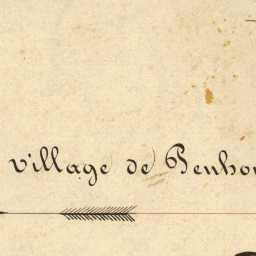 village de Penho